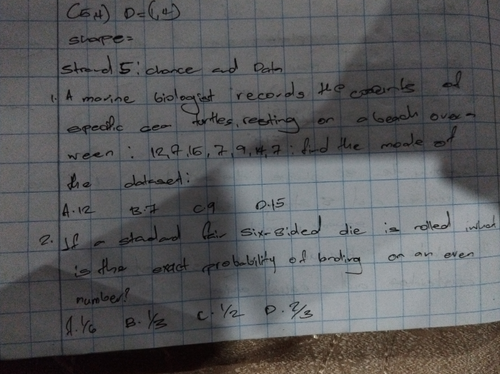 (5,4) D=(,4)
shape=
Strand 5: chance and Data
1. A marine biologist records the of
specific sea turtles, resting on a beach over a
ween: 12,7,15,7,9,4,7: find the mode of
the dataset:
A.12 B.7 C.9 D.15
2. If a standard fair six-sided die is rolled
is the exact probability of landing on an even
number?
A.1/6 B.1/3 C.1/2 D.2/3